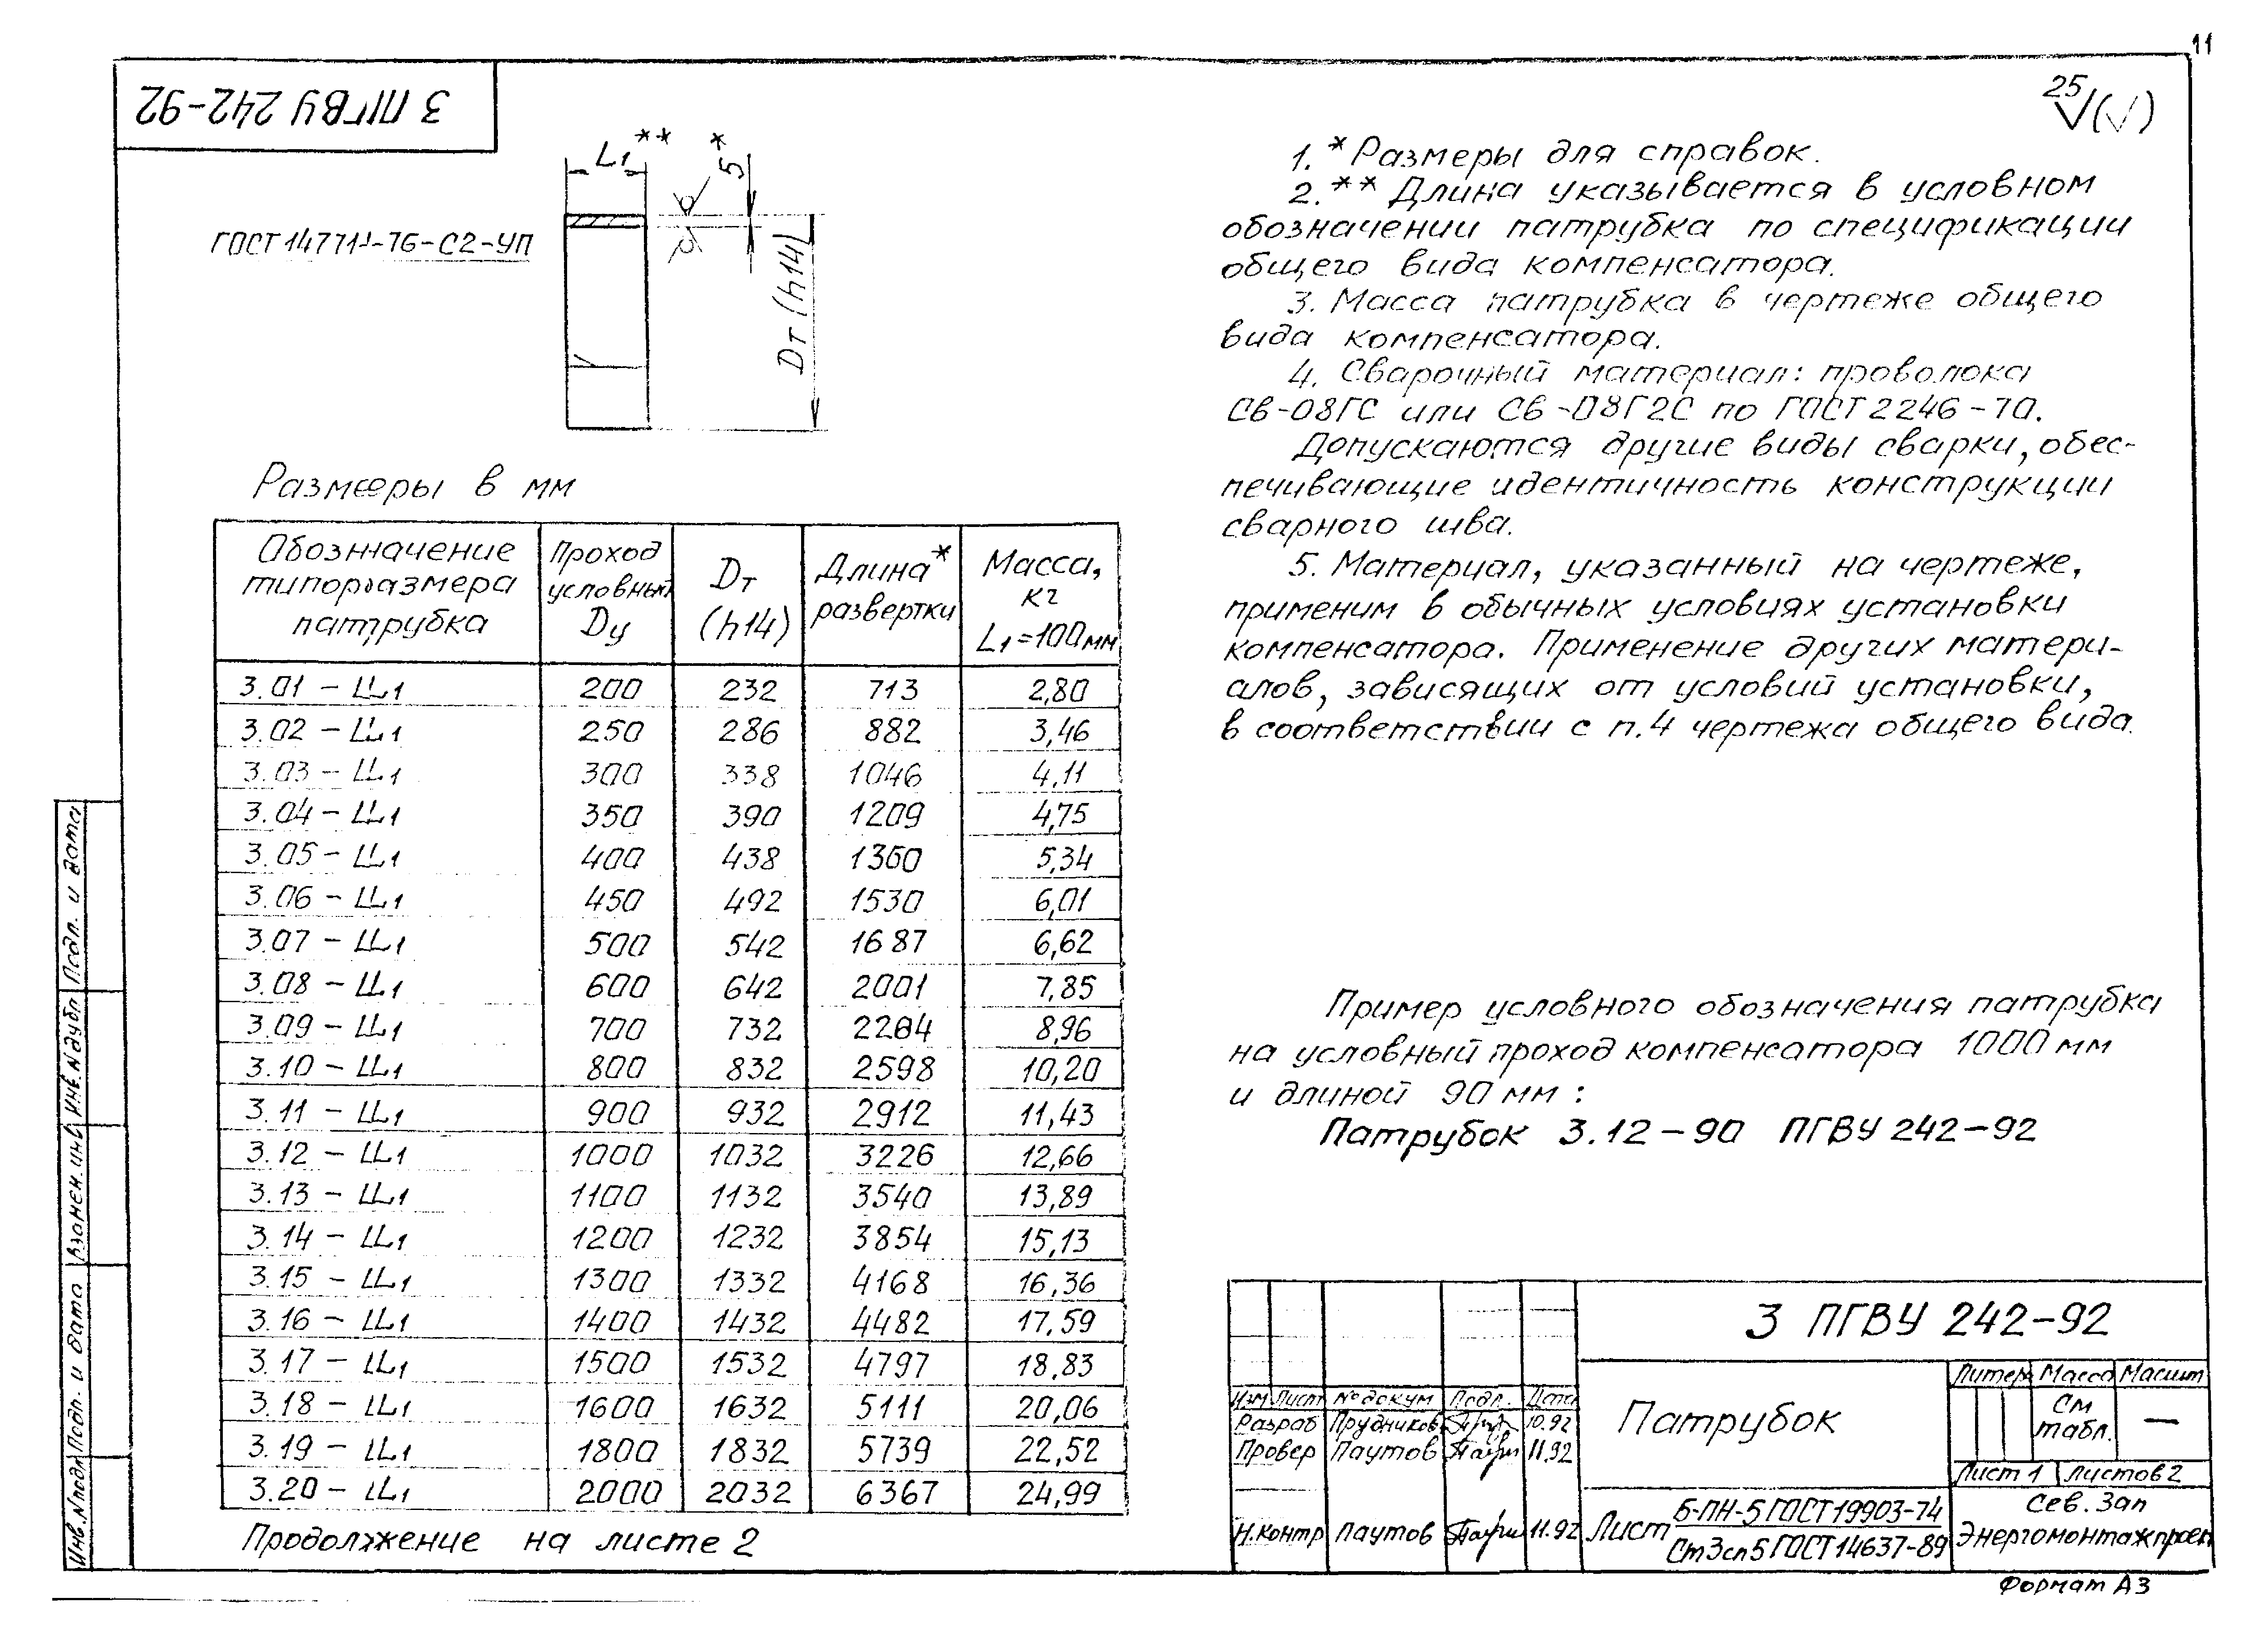 11
3 ПГВУ 242-92
25 √(√)
L1**
5*
Dт (h14)
ГОСТ 14771-76-С2-УП
Размеры в мм
Обозначение типоразмера патрубка | Проход условный Dу | Dт (h14) | Длина* развертки | Масса, кг L1=100мм
3.01 - LL1 | 200 | 232 | 713 | 2,80
3.02 - LL1 | 250 | 286 | 882 | 3,46
3.03 - LL1 | 300 | 338 | 1046 | 4,11
3.04 - LL1 | 350 | 390 | 1209 | 4,75
3.05 - LL1 | 400 | 438 | 1360 | 5,34
3.06 - LL1 | 450 | 492 | 1530 | 6,01
3.07 - LL1 | 500 | 542 | 1687 | 6,62
3.08 - LL1 | 600 | 642 | 2001 | 7,85
3.09 - LL1 | 700 | 732 | 2284 | 8,96
3.10 - LL1 | 800 | 832 | 2598 | 10,20
3.11 - LL1 | 900 | 932 | 2912 | 11,43
3.12 - LL1 | 1000 | 1032 | 3226 | 12,66
3.13 - LL1 | 1100 | 1132 | 3540 | 13,89
3.14 - LL1 | 1200 | 1232 | 3854 | 15,13
3.15 - LL1 | 1300 | 1332 | 4168 | 16,36
3.16 - LL1 | 1400 | 1432 | 4482 | 17,59
3.17 - LL1 | 1500 | 1532 | 4797 | 18,83
3.18 - LL1 | 1600 | 1632 | 5111 | 20,06
3.19 - LL1 | 1800 | 1832 | 5739 | 22,52
3.20 - LL1 | 2000 | 2032 | 6367 | 24,99
Продолжение на листе 2
1. * Размеры для справок.
2. ** Длина указывается в условном
обозначении патрубка по спецификации
общего вида компенсатора.
3. Масса патрубка в чертеже общего
вида компенсатора.
4. Сварочный материал: проволока
Св-08ГС или Св-08Г2С по ГОСТ 2246-70.
Допускаются другие виды сварки, обес-
печивающие идентичность конструкции
сварного шва.
5. Материал, указанный на чертеже,
применим в обычных условиях установки
компенсатора. Применение других матери-
алов, зависящих от условий установки,
в соответствии с п.4 чертежа общего вида.
Пример условного обозначения патрубка
на условный проход компенсатора 1000 мм
и длиной 90 мм:
Патрубок 3.12-90 ПГВУ 242-92
Инв.N подл Подп. и дата Взамен. инв Инв.N дубл Подп. и дата
3 ПГВУ 242-92
Изм Лист № докум Подп. Дата
Разраб Прудников 10.92
Провер Паутов 11.92
Н.контр Паутов 11.92
Патрубок
Литер Масса Масшт
См табл. —
Лист 1 Листов 2
Лист Б-ПН-5 ГОСТ 19903-74
Ст3сп5 ГОСТ 14637-89
Сев. Зап
Энергомонтажпроект
Формат А3